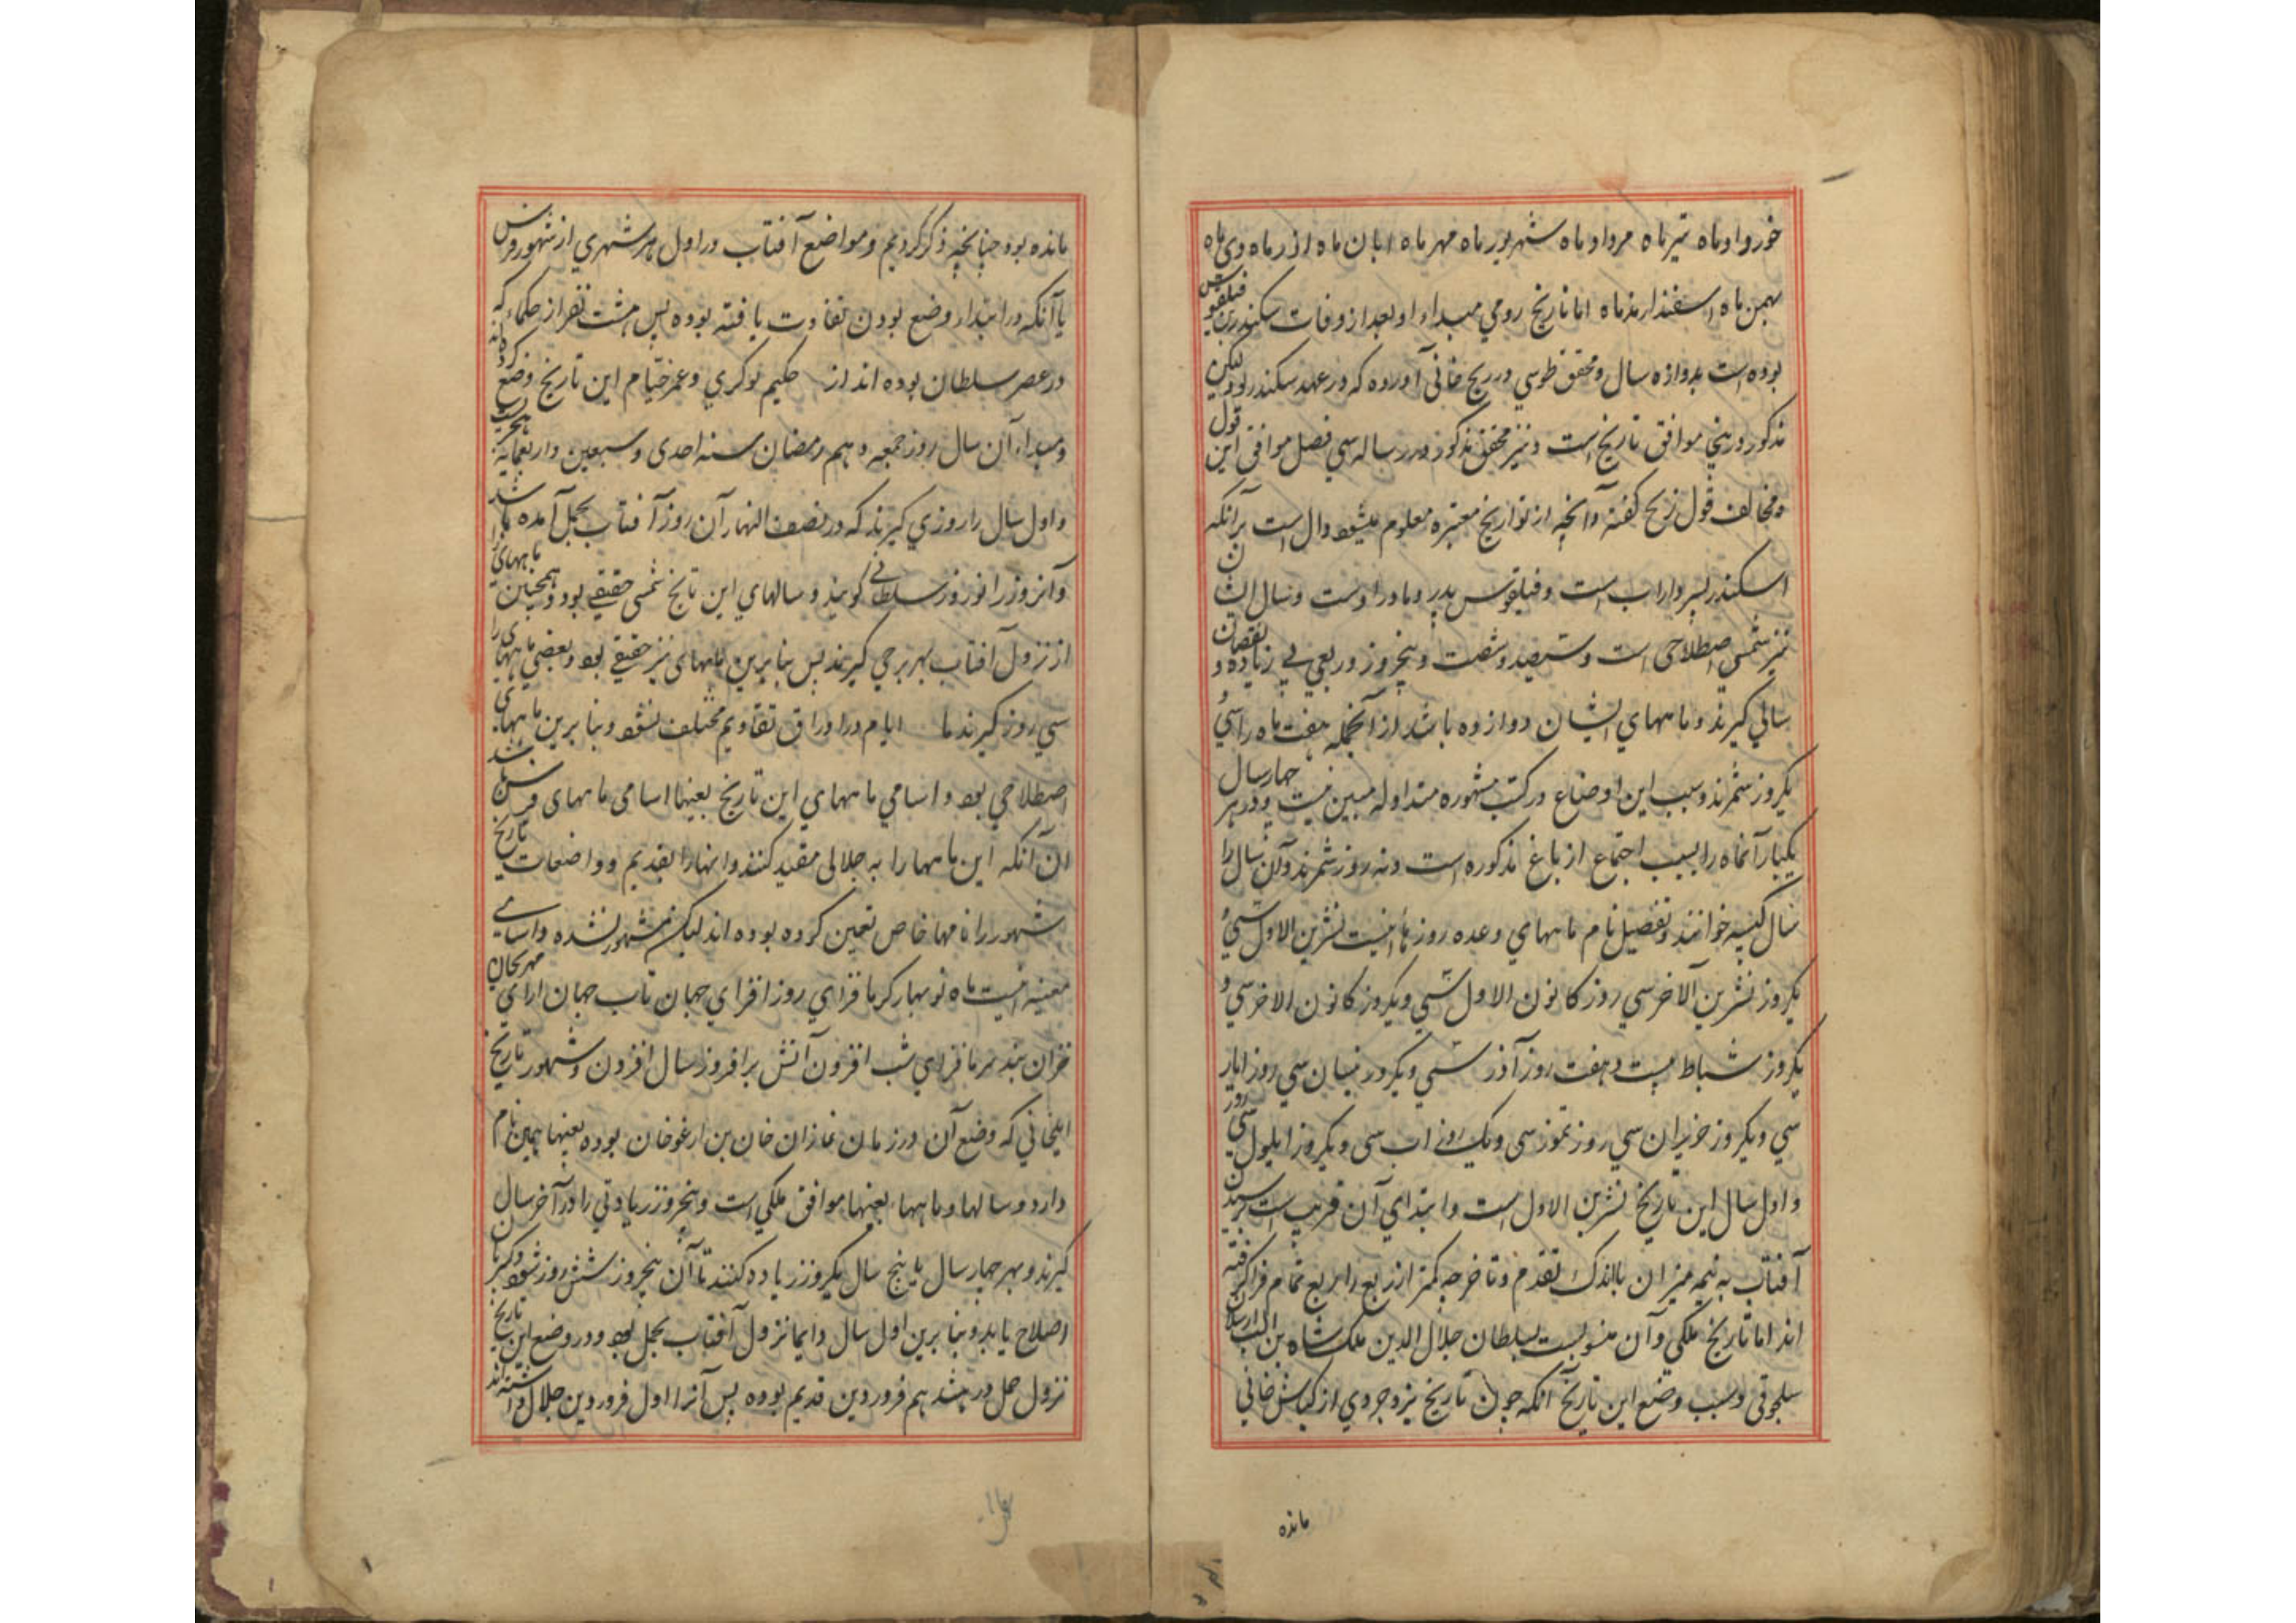 خورداد ماه تیر ماه مرداد ماه شهریور ماه مهر ماه ابان ماه اذر ماه دی ماه
بهمن ماه اسفندارمذ ماه اما تاریخ رومي مبداء او بعد از وفات سکندر بن فیلقوس
بوده است بدوازده سال و محقق طوسي در زیج خانی آورده که در عهد سکندر بود لیکن
مذکور در موافق تاریخ است و نیز محقق مذکور در رساله سي فصل موافق این قول
و مخالف قول زیج کفته و آنچه از تواریخ معتبره معلوم میشود دال است برآنکه
اسکندر پسر داراب است و فیلقوس پدر مادر اوست و سال ایشان
نیز شمسي اصطلاحی است و سیصد و شصت و پنج روز و ربعي بي زیاده و نقصان
سالي کیرند و ماههاي ایشان دوازده باشد از آنجمله هفت ماه را سي و
یکروز شمرند و سبب این اوضاع در کتب مشهوره متداوله مبین نیست و در هر چهار سال
یکبار آنماه را بسبب اجتماع ارباع مذکوره است و نه روز شمرند و آن سال را
سال کبیسه خوانند و تفصیل نام ماههاي و عده روزها اینست تشرین الاول سي و
یکروز تشرین الآخر سي روز کانون الاول سي و یکروز کانون الاخر سي و
یکروز شباط بیست و هفت روز آذر سي و یکروز نیسان سي روز ایار
سي و یکروز حزیران سي روز تموز سی و یک روز اب سی و یکروز ایلول سی روز
و اول سال این تاریخ تشرین الاول است و ابتدای آن قریب است برسیدن
آفتاب به نیمه میزان باندک تقدم و تاخر چه کمتر از ربع را ربع تمام فرا کرفته
اند اما تاریخ ملکی و آن منسوبست بسلطان جلال الدین ملک شاه بن الب ارسلان
سلجوقی و سبب وضع این تاریخ آنکه چون تاریخ یزدجردي از کبایش خالی
مانده
مانده بود چنانچه ذکر کردیم و مواضع آفتاب در اول هر شهري از شهور فرس
با آنکه در ابتداء وضع بودن تفاوت یافته بوده پس هشت نفر از حکماء که
در عصر سلطان بوده اند از حکیم لوکري و عمر خیام این تاریخ وضع کرده اند
و مبداء آن سال روز جمعه دهم رمضان سنه احدی و سبعین و اربعمایه هجریست
و اول سال را روزي کیرند که در نصف النهار آن روز آفتاب بحمل آمده باشد
و آنروز را نوروز سلطاني کویند و سالهاي این تاریخ شمسی حقیقي بود و همچنین ماههای را
از نزول آفتاب بهر برجي کیرند پس بنابرین ماههای نیز حقیقي بود و بعضي ماههای را
سي روز کیرند تا ایام در اوراق تقاویم مختلف نشود و بنابرین ماههای
اصطلاحي بود و اسامي ماههاي این تاریخ بعینها اسامی ماههای فرس باشد
الا آنکه این ماهها را به جلالی مقید کنند و انها را بقدیم و واضعان تاریخ
شهور را نامها خاص تعین کرده بوده اند لیکن مشهور نشده و اسامي
معینه اینست ماه نو بهار کرما فزاي روز افزاي جهان تاب جهان ارای مهرکان
خزان سرما فزاي شب افزون آتش برافروز سال افزون و شهور تاریخ
ایلخاني که وضع آن در زمان غازان خان بن ارغوخان بوده بعینها همین نام
دارد و سالها و ماهها بعینها موافق ملکي است و پنجروز زیادتي را در آخر سال
کیرند و بهر چهار سال یا پنج سال یکروز زیاده کنند تا آن پنجروز شش روز شود
اصلاح یابد و بنابرین اول سال دایما نزول آفتاب بحمل بود و در وضع این تاریخ
نزول حمل در هشدهم فروردین قدیم بوده پس آنرا اول فروردین جلالی داشته اند